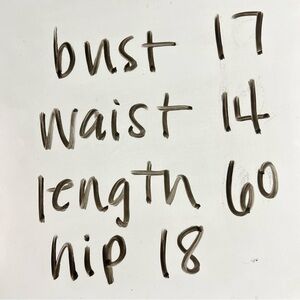 bust 17
waist 14
length 60
hip 18